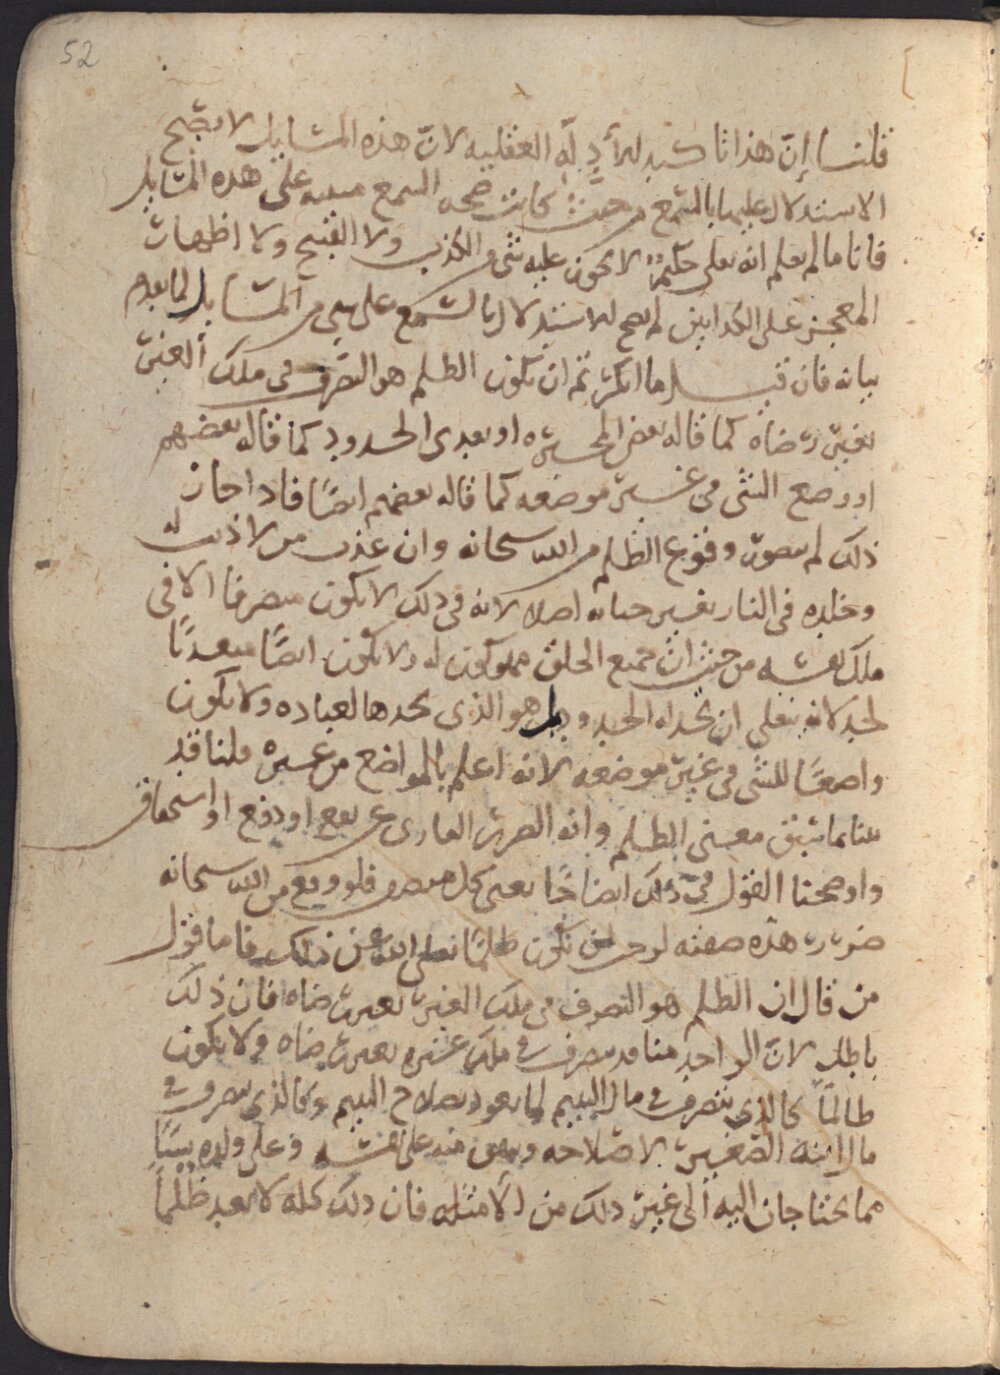 52
قلنا إنّ هذا تاكيد للأدِلّةِ العقليه لانّ هذه المسايل لا يصّح
الاستدلال عليها بالسّمع من حيث كانت صحه السمع مبنيه على هذه المسايل
فانا ما لم نعلم انه تعلى حكيمٌ لا يجوز عليه شي من الكذب ولا القبيح ولا اظهار
المعجز على الكذابين لم يصح الاستدلال بالسّمع على شي من المسايل لما تقدم
بيانه فان قيل ما انكرتم ان يكون الظلم هو التصّرف في ملك الغير
بغير رضاه كما قاله بعض المجبره او تعدى الحدود كما قاله بعضهم
او وضع الشي في غير موضعه كما قاله بعضهم ايضًا فاذا جاز
ذلك لم يتصور وقوع الظلم من الله سبحانه وان عذب من لا ذنب له
وخلده في النار بغير جنايه اصلا لانه في ذلك لا يكون متصرفا الا في
ملك نفسه من حيث ان جميع الخلق مملوكون له ولا يكون ايضًا متعديًا
لحد لانه يتعلى ان تحد له الحدود بل هو الذي يحدها لعباده ولا يكون
واضعًا للشي في غير موضعه لانه اعلم بالمواضع من غيره قلنا قد
بينا بما سبق معنى الظلم وانه الضرر العاري عن نفع او دفع او استحقاق
واوضحنا القول في ذلك ايضاحًا يعنى كل منصف فلو وقع من الله سبحانه
ضرر هذه صفته لوجب ان يكون ظلمًا تعلى الله عن ذلك فاما قول
من قال ان الظلم هو التصرف في ملك الغير بغير رضاه فان ذلك
باطل لانّ الواحد منا قد يتصرف في ملك غيره بغير رضاه ولا يكون
ظالماً كالذي يتصرف في مال اليتيم لما يعود بصلاح اليتيم وكالذي يتصرف في
مال ابنه الصّغير لاصلاحه وينفق منه على نفسه وعلى ولده شيئًا
مما يحتاجان اليه الى غير ذلك من الأمثله فان ذلك كله لا يعد ظلماً